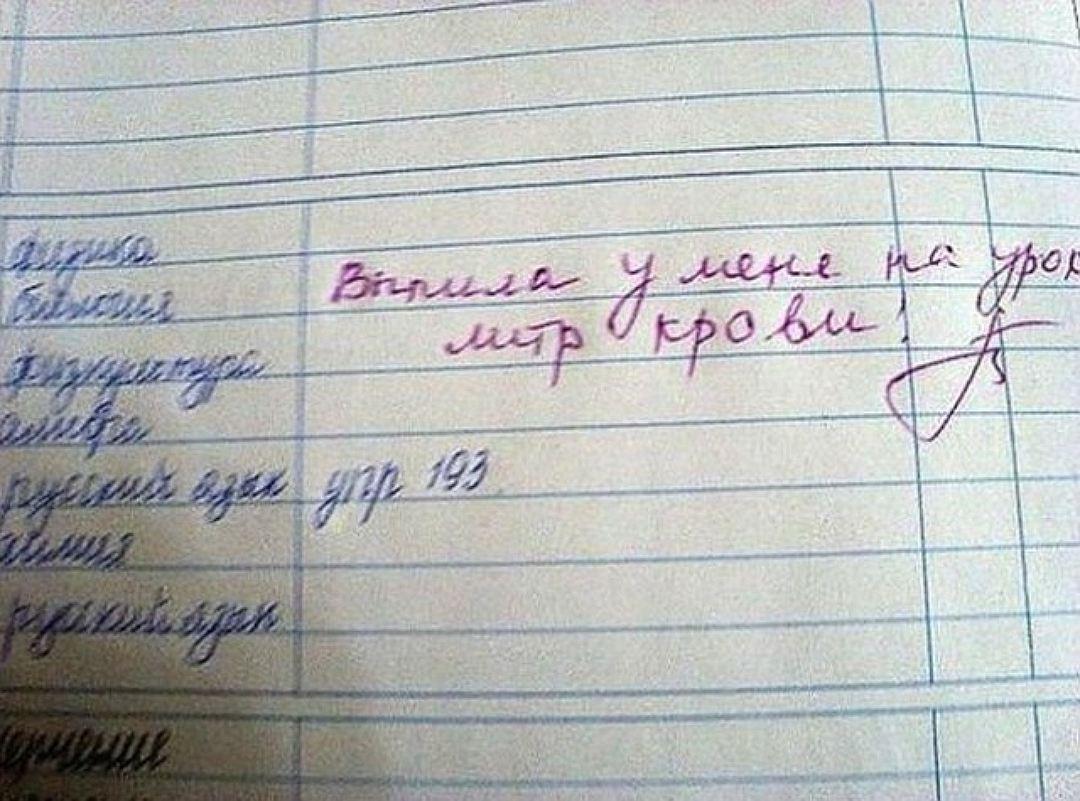 физика
биология
физкультура
алгебра
русский язык упр 193
химия
русский язык
черчение
Выпила у меня на урок
литр крови!